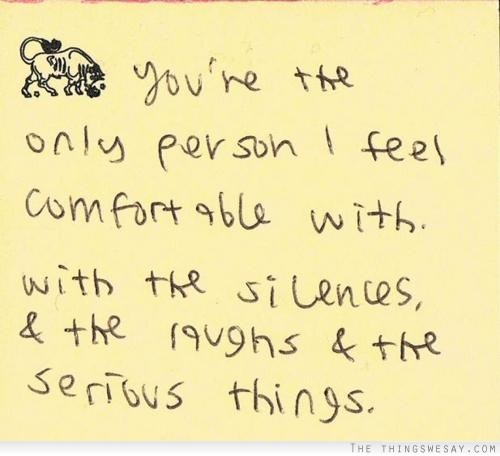 you're the
only person I feel
comfortable with.
with the silences,
& the laughs & the
serious things.
THE THINGSWESAY.COM